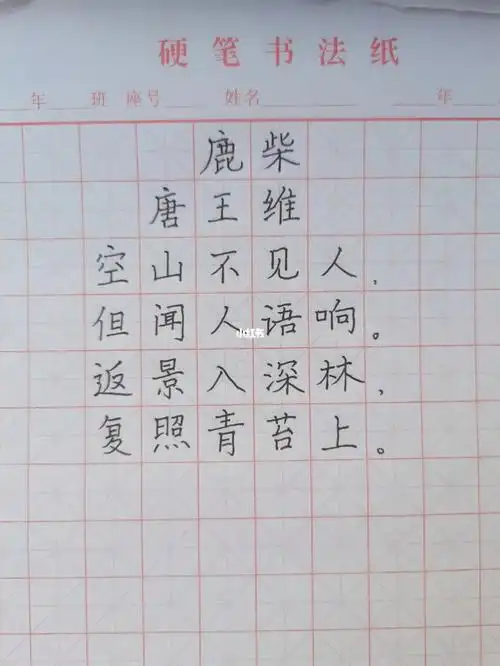 硬笔书法纸
年 班 座号 姓名 年
鹿柴
唐 王维
空山不见人，
但闻人语响。
小红书
返景入深林，
复照青苔上。